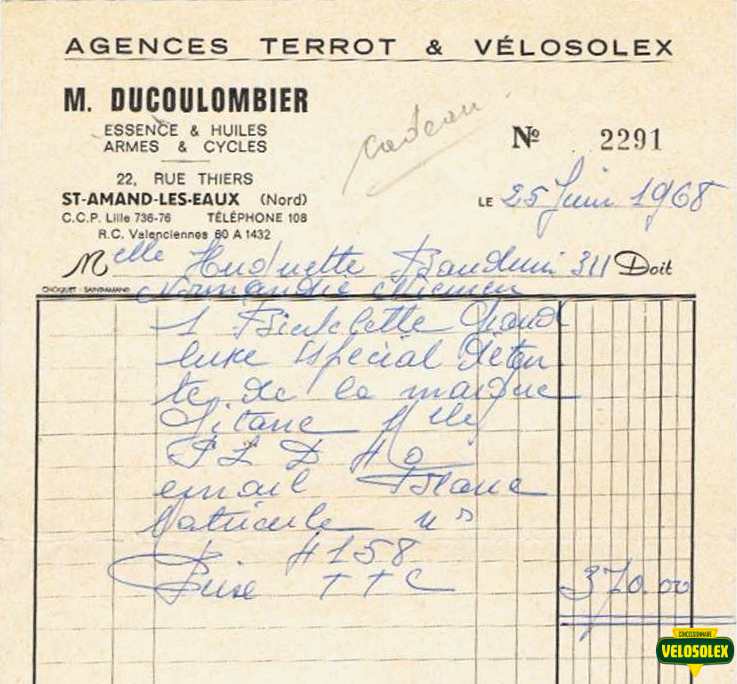 AGENCES TERROT & VÉLOSOLEX
M. DUCOULOMBIER
ESSENCE & HUILES
ARMES & CYCLES
cadeau
Nº 2291
22, RUE THIERS
ST-AMAND-LES-EAUX (Nord)
C.C.P. Lille 736-76 TÉLÉPHONE 108
R.C. Valenciennes 60 A 1432
LE 25 Juin 1968
Melle Huguette 311 Doit
CHOQUET - SAINT-AMAND
Normandie Niemen
1 Biciclette Grand
luxe Spécial Déten
te de la marque
Gitane Mle
émail Blanc
Matricule n°
4158
Prix TTC 370.00
CONCESSIONNAIRE
VELOSOLEX